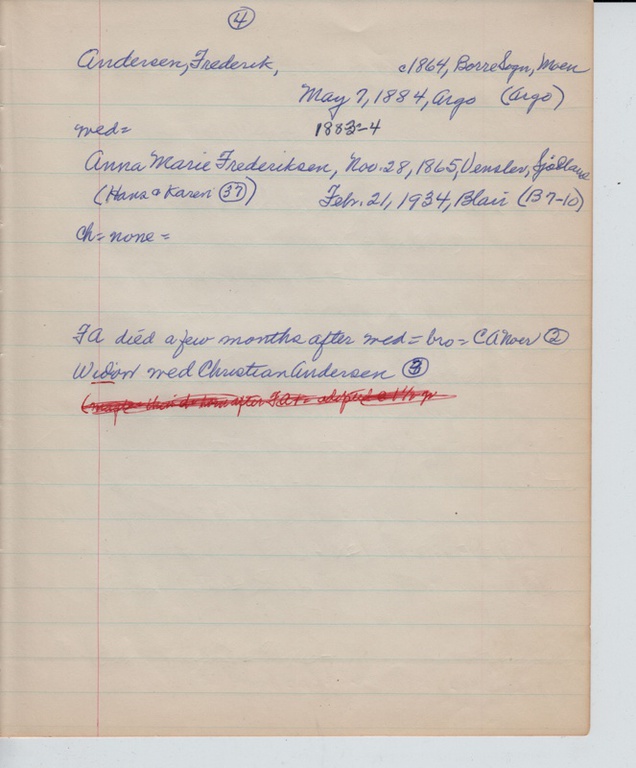 4
Andersen, Frederik, c1864, Borre Sogn, Moen
May 7, 1884, Argo (Argo)
wed= 1883-4
Anna Marie Frederiksen, Nov. 28, 1865, Venslev, Sjælland
(Hans & Karen 37) Febr. 21, 1934, Blair (B7-10)
ch= none =
FA died a few months after wed= bro= CANoer 2
Widow wed Christian Andersen 3
after FA